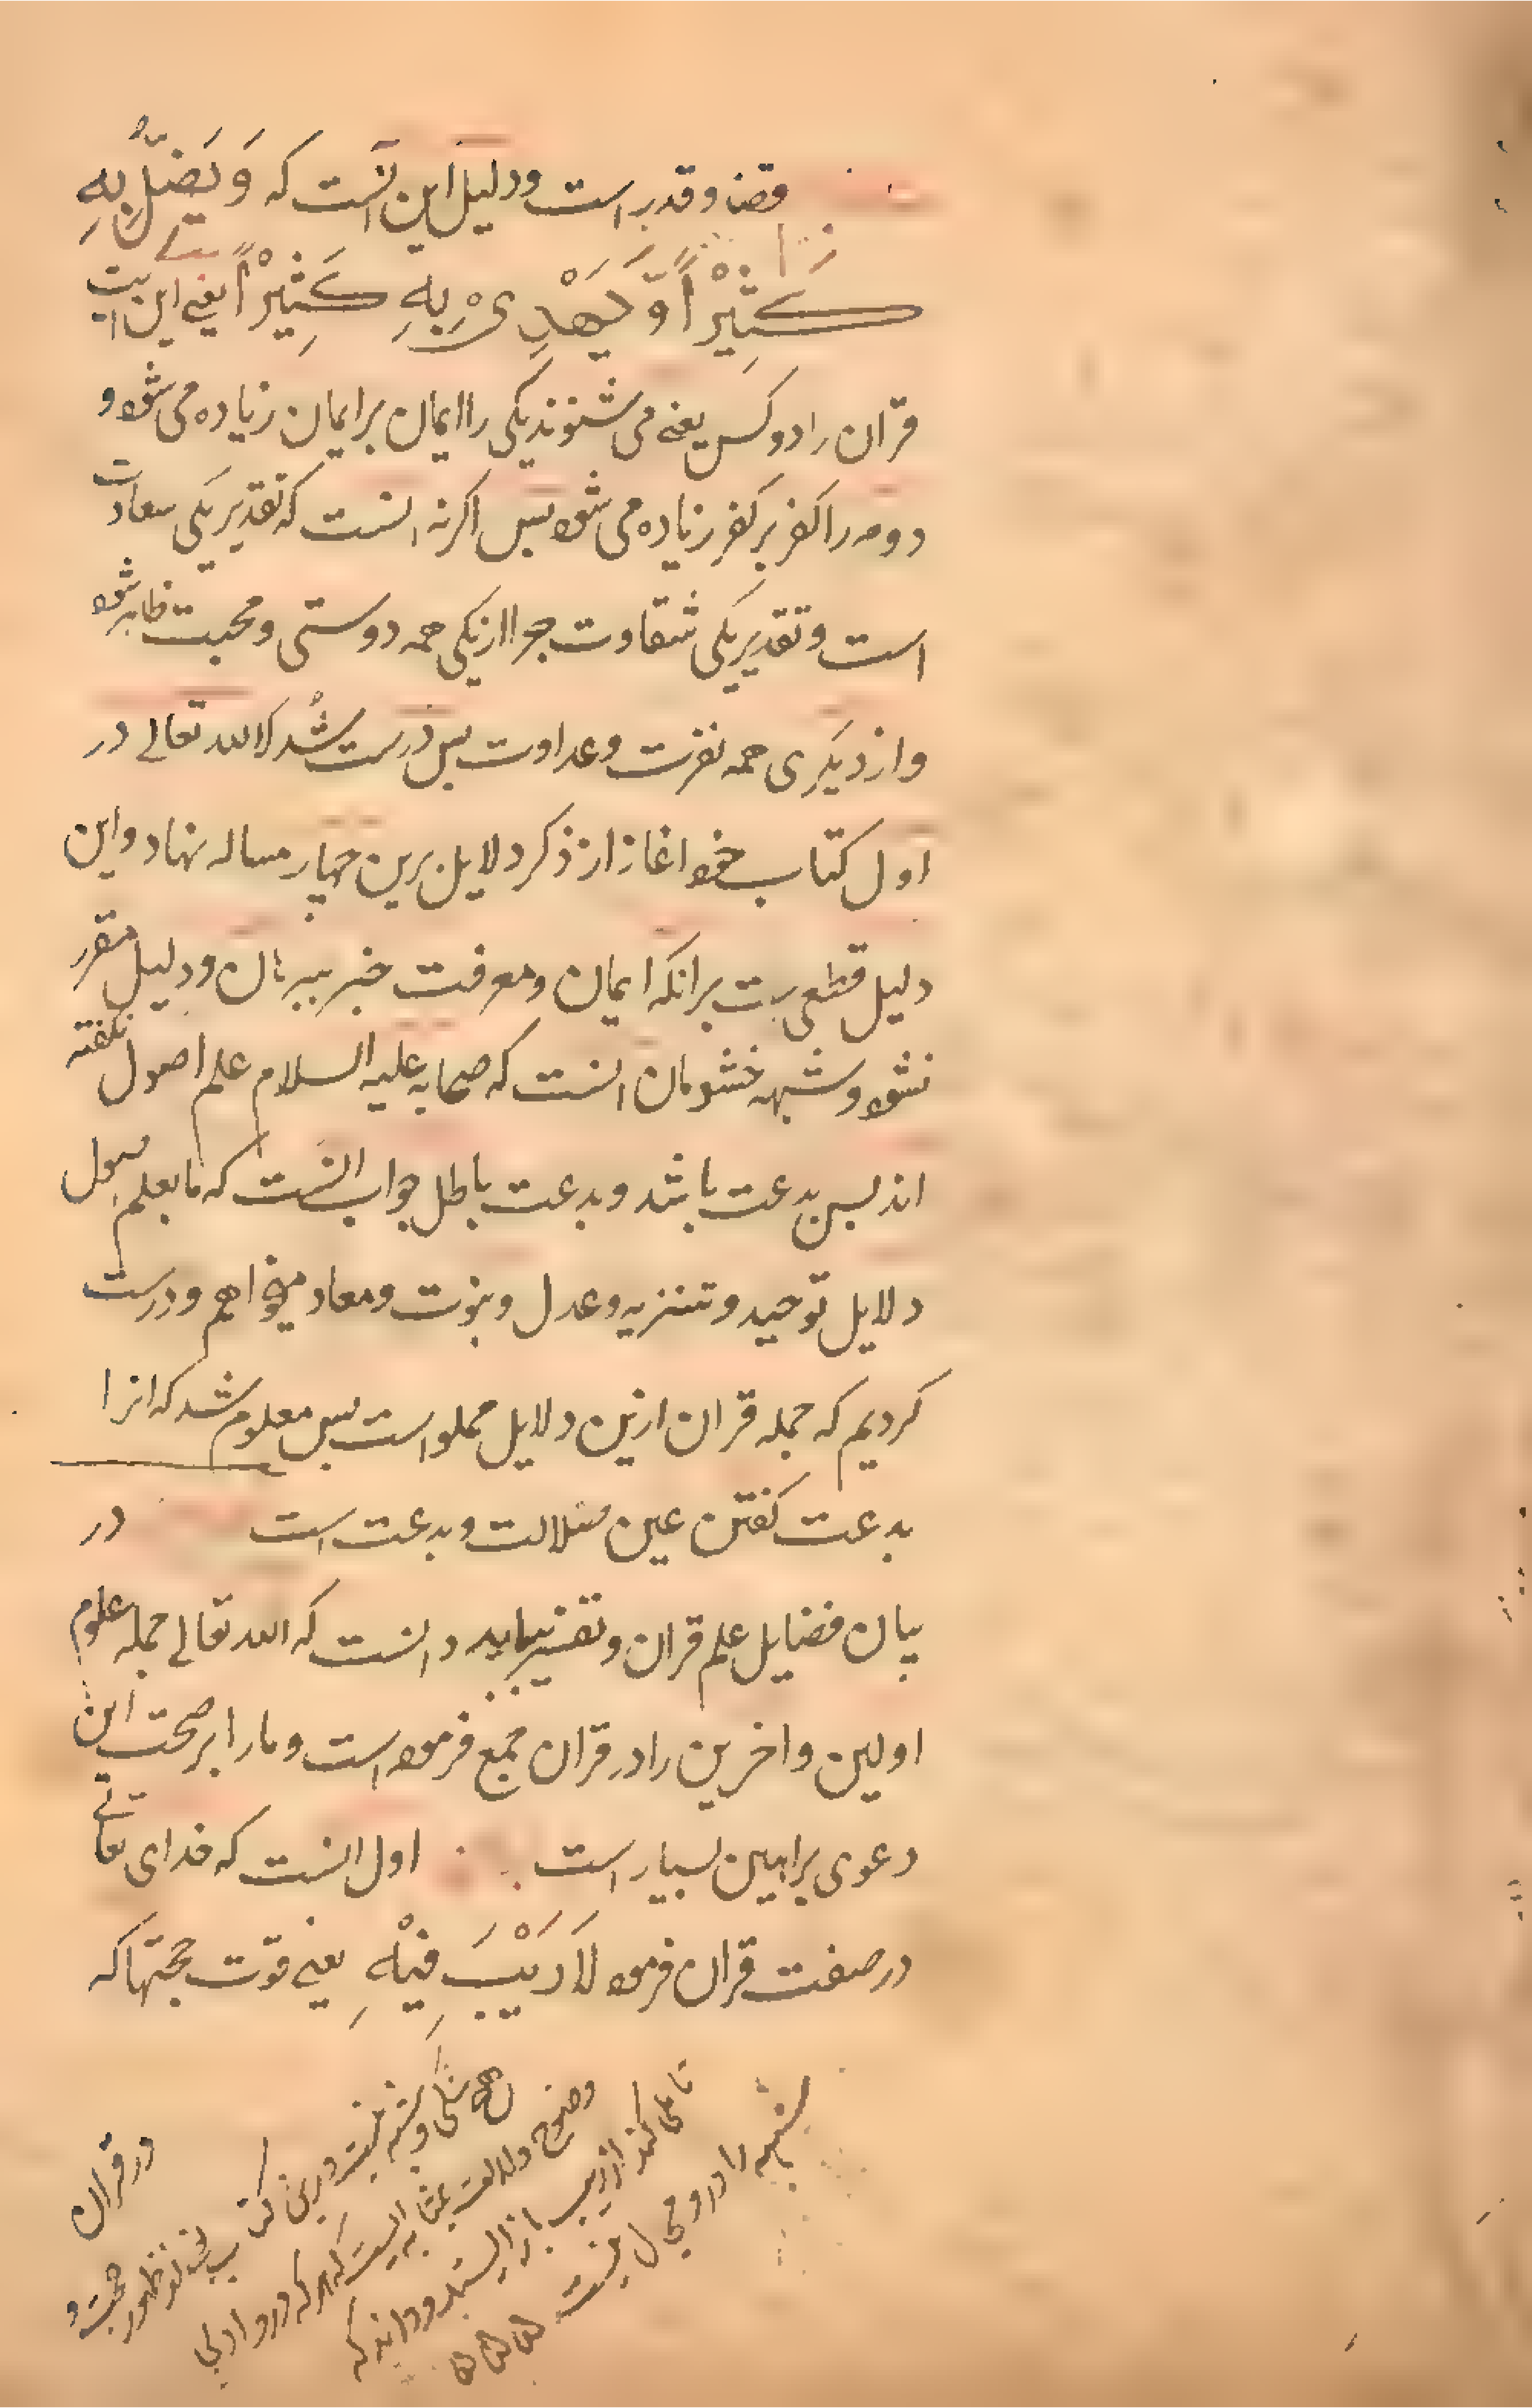 قضا و قدر است و دلیل این آنست که وَ یُضِلُّ بِهِ
کَثِیْرًا وَّ یَهْدِیْ بِهِ کَثِیْرًا یعنی این ایت
قران را دو کس یعنی می شنوند یکی را ایمان بر ایمان زیاده می شود و
دوم را کفر بر کفر زیاده می شود بس اکر نه انست که تقدیر یکی سعادت
است و تقدیر یکی شقاوت جرا از یکی همه دوستی و محبت ظاهر شود
و از دیکری همه نفرت و عداوت بس درست شد که الله تعالی در
اول کتاب خود اغاز از ذکر دلایل برین جهار مساله نهاد و این
دلیل قطعی ست بر انکه ایمان و معرفت جز ببرهان و دلیل مقرر
نشود و شبهه خشومان انست که صحابه علیه السلام علم اصول نکفته
اند بس بدعت باشد و بدعت باطل جواب انست که ما بعلم اصول
دلایل توحید و تنزیه و عدل و نبوت و معاد میخواهم و درست
کردیم که جمله قران ازین دلایل مملو است بس معلوم شد که انرا
بدعت کفتن عین ضلالت و بدعت است در
بیان فضایل علم قران و تفسیر بباید دانست که الله تعالی جمله علوم
اولین و اخرین را در قران جمع فرموده است و ما را بر صحت این
دعوی براهین بسیار است اول انست که خدای تعالی
در صفت قران فرمود لَا رَیْبَ فِیْهِ یعنی قوت حجتها که
در قران
هیچ شکی و شبه نیست درین کتاب یعنی در ظهور حجت و
وضوح دلالت بمثابه ایست که هر که در و ادنی
تاملی کند از ریب باز ایستد و داند که
شبه را در و مجال نیست